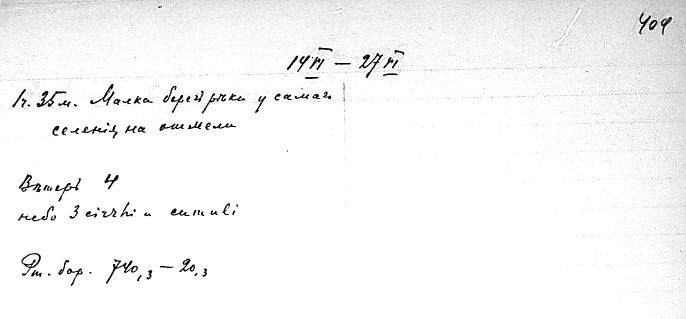 404
14 VI — 27 VI
1 ч. 35 м. Малка берегъ рѣки у самаго
селенія, на отмели
Вѣтеръ 4
небо 3 ci
Рт. бар. 740,3 — 20,3